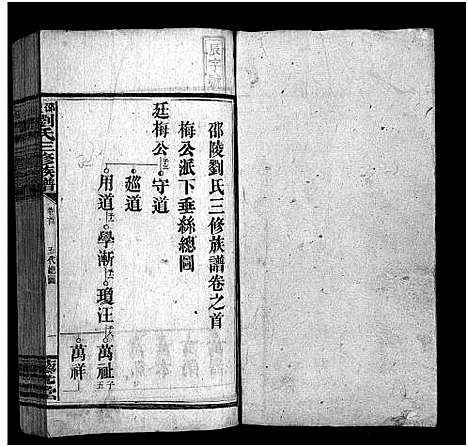 辰字號
邵陵劉氏三修族譜卷之首
梅公派下垂絲總圖
廷梅公 守道
巡道
用道 學漸 瓊汪 萬祉
萬祥
邵陵劉氏三修族譜
卷首
五代總圖